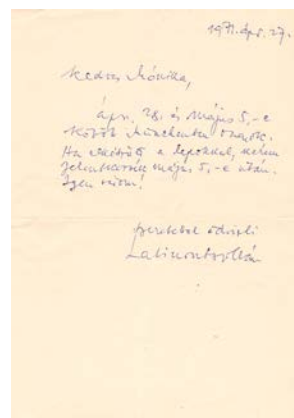 1971. ápr. 27.
Kedves Mónika,
ápr. 28. és május 5.-e
között Münchenben vagyok.
Ha a, kérem
jelentkezzék május 5.-e után.
Igen várom!
szeretettel üdvözli
Latinovits Zoltán